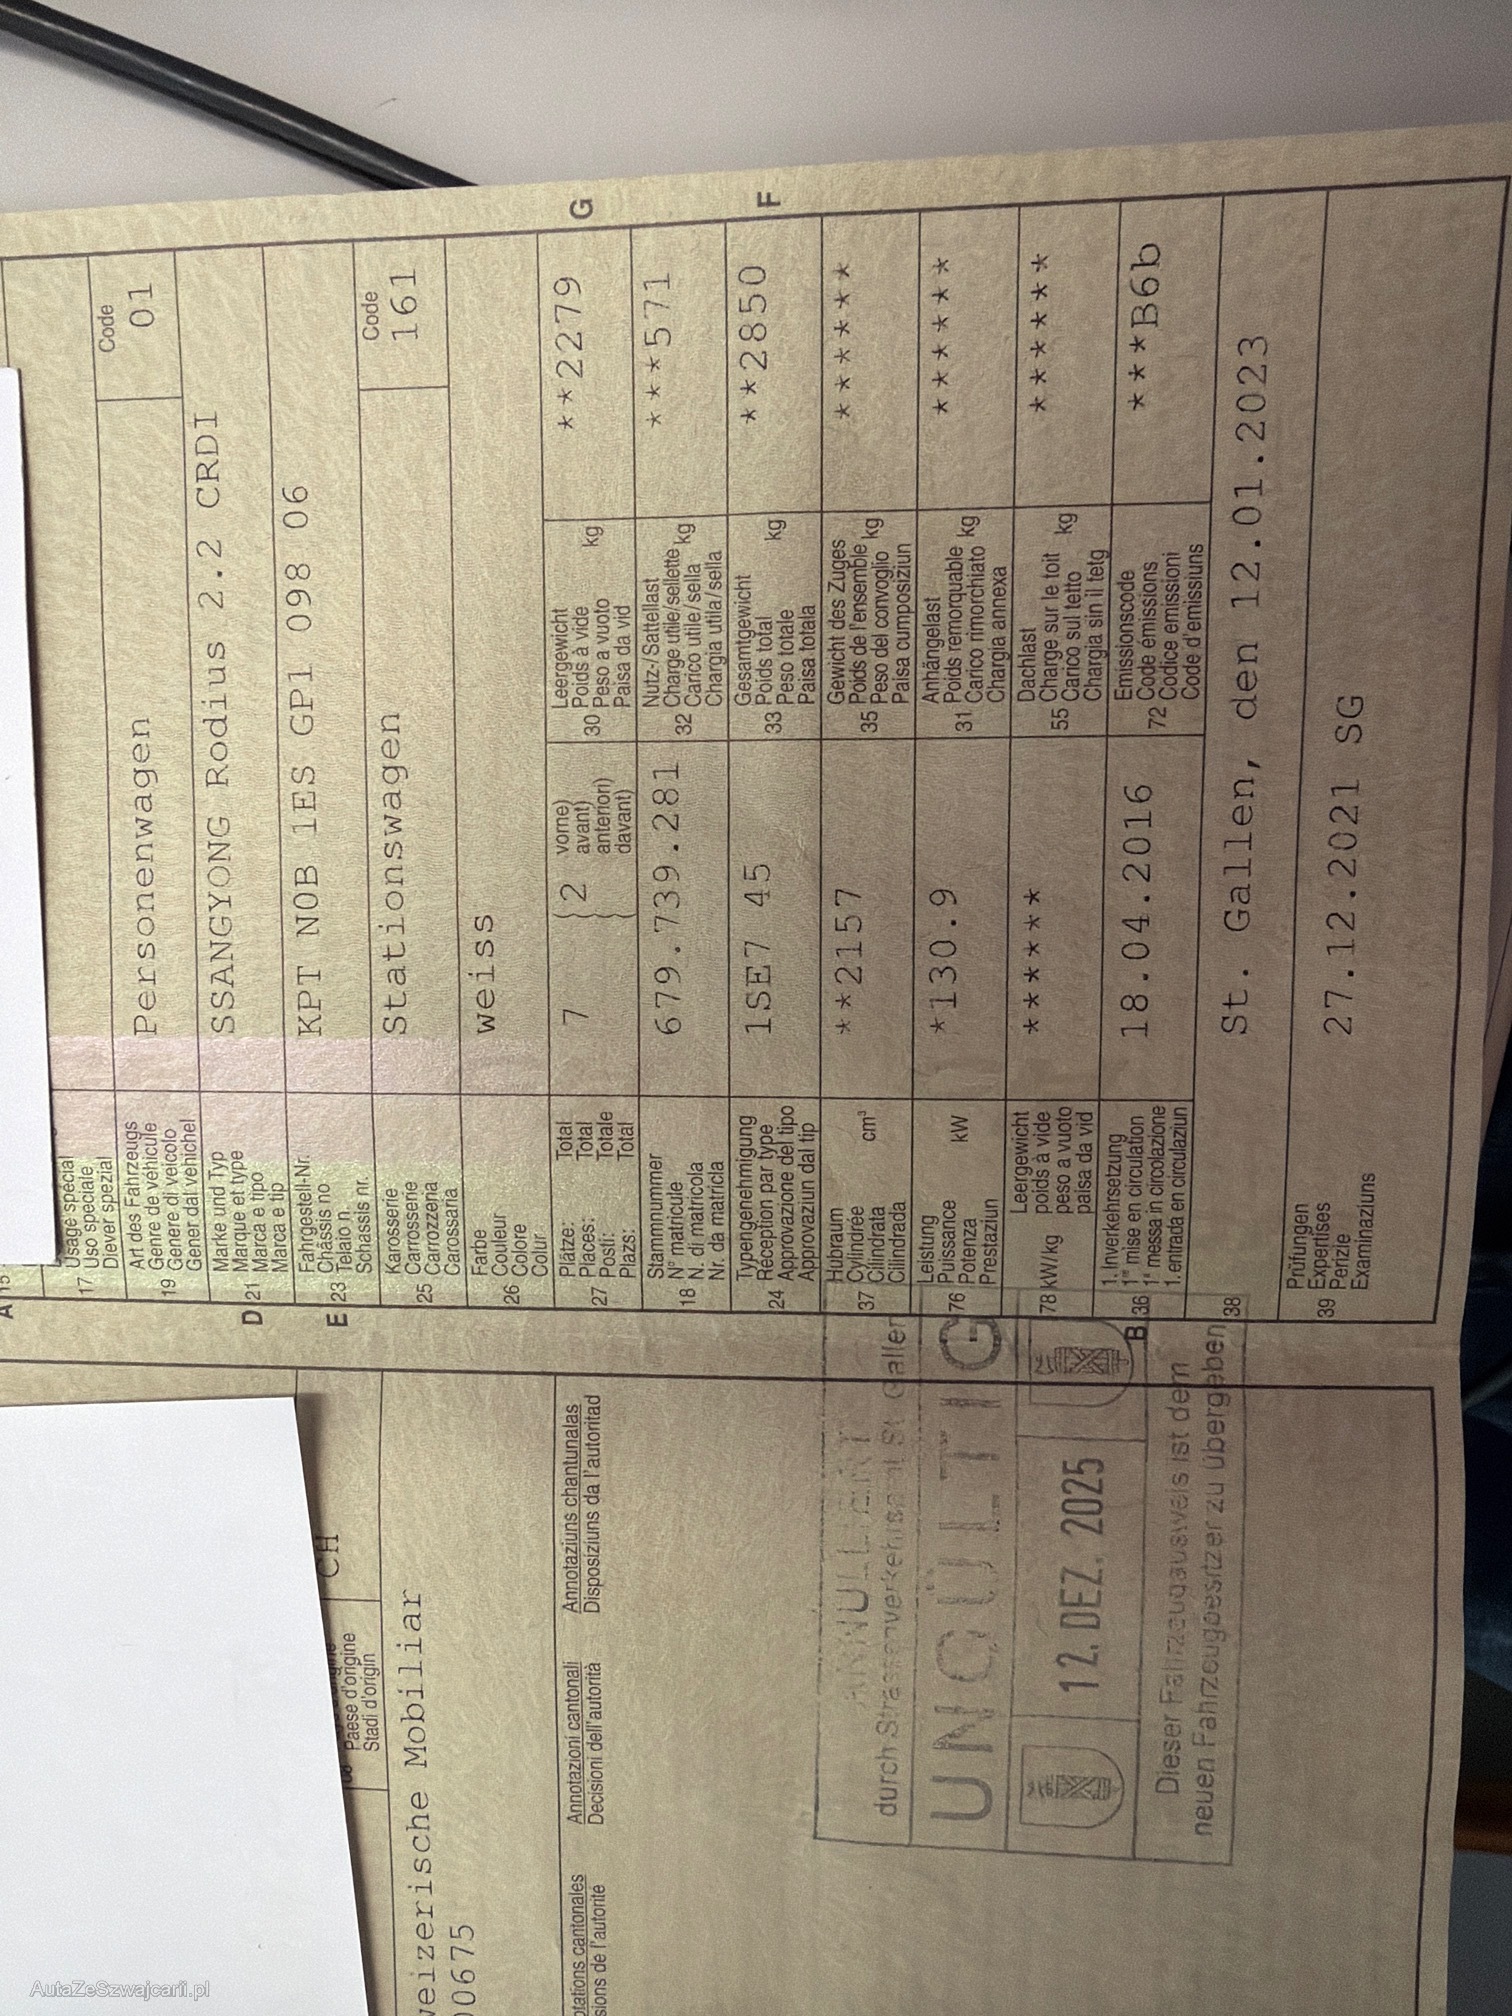 A 15
Usage spécial
17 Uso speciale
Diever spezial
Art des Fahrzeugs
Genre de véhicule
19 Genere di veicolo
Gener dal vehichel
Personenwagen
Code
01
Marke und Typ
Marque et type
D 21 Marca e tipo
Marca e tip
SSANGYONG Rodius 2.2 CRDI
Fahrgestell-Nr.
Châssis no
E 23 Telaio n.
Schassis nr.
KPT N0B 1ES GP1 098 06
Karosserie
Carrosserie
25 Carrozzeria
Carossaria
Stationswagen
Code
161
Farbe
Couleur
26 Colore
Colur
weiss
Plätze: Total
Places: Total
27 Posti: Totale
Plazs: Total
7 { 2 vorne)
avant)
anteriori)
davant)
Leergewicht
Poids à vide
30 Peso a vuoto kg
Paisa da vid
**2279
G
Stammnummer
N° matricule
18 N. di matricola
Nr. da matricla
679.739.281
Nutz-/Sattellast
Charge utile/sellette
32 Carico utile/sella kg
Chargia utila/sella
***571
Typengenehmigung
Réception par type
24 Approvazione del tipo
Approvaziun dal tip
1SE7 45
Gesamtgewicht
Poids total
33 Peso totale kg
Paisa totala
**2850
F
Hubraum
37 Cylindrée cm³
Cilindrata
Cilindrada
**2157
Gewicht des Zuges
Poids de l'ensemble
35 Peso del convoglio kg
Paisa cumposiziun
*******
Leistung
76 Puissance kW
Potenza
Prestaziun
*130.9
Anhängelast
Poids remorquable
31 Carico rimorchiato kg
Chargia annexa
*******
78 kW/kg
Leergewicht
poids à vide
peso a vuoto
paisa da vid
******
Dachlast
Charge sur le toit
55 Carico sul tetto kg
Chargia sin il tetg
*******
1. Inverkehrsetzung
1re mise en circulation
B 36 1a messa in circolazione
1. entrada en circulaziun
18.04.2016
Emissionscode
Code émissions
72 Codice emissioni
Code d'emissiuns
***B6b
38
St. Gallen, den 12.01.2023
Prüfungen
Expertises
39 Perizie
Examinaziuns
27.12.2021 SG
CH
Paese d'origine
Stadi d'origin
weizerische Mobiliar
00675
Annotazioni cantonali
Decisioni dell'autorità
Annotaziuns chantunalas
Disposiziuns da l'autoritad
tations cantonales
sions de l'autorité
ANNULLIERT
durch Strassenverkehrsamt St. Gallen
UNGÜLTIG
12. DEZ. 2025
Dieser Fahrzeugausweis ist dem
neuen Fahrzeugbesitzer zu übergeben
AutaZeSzwajcarii.pl